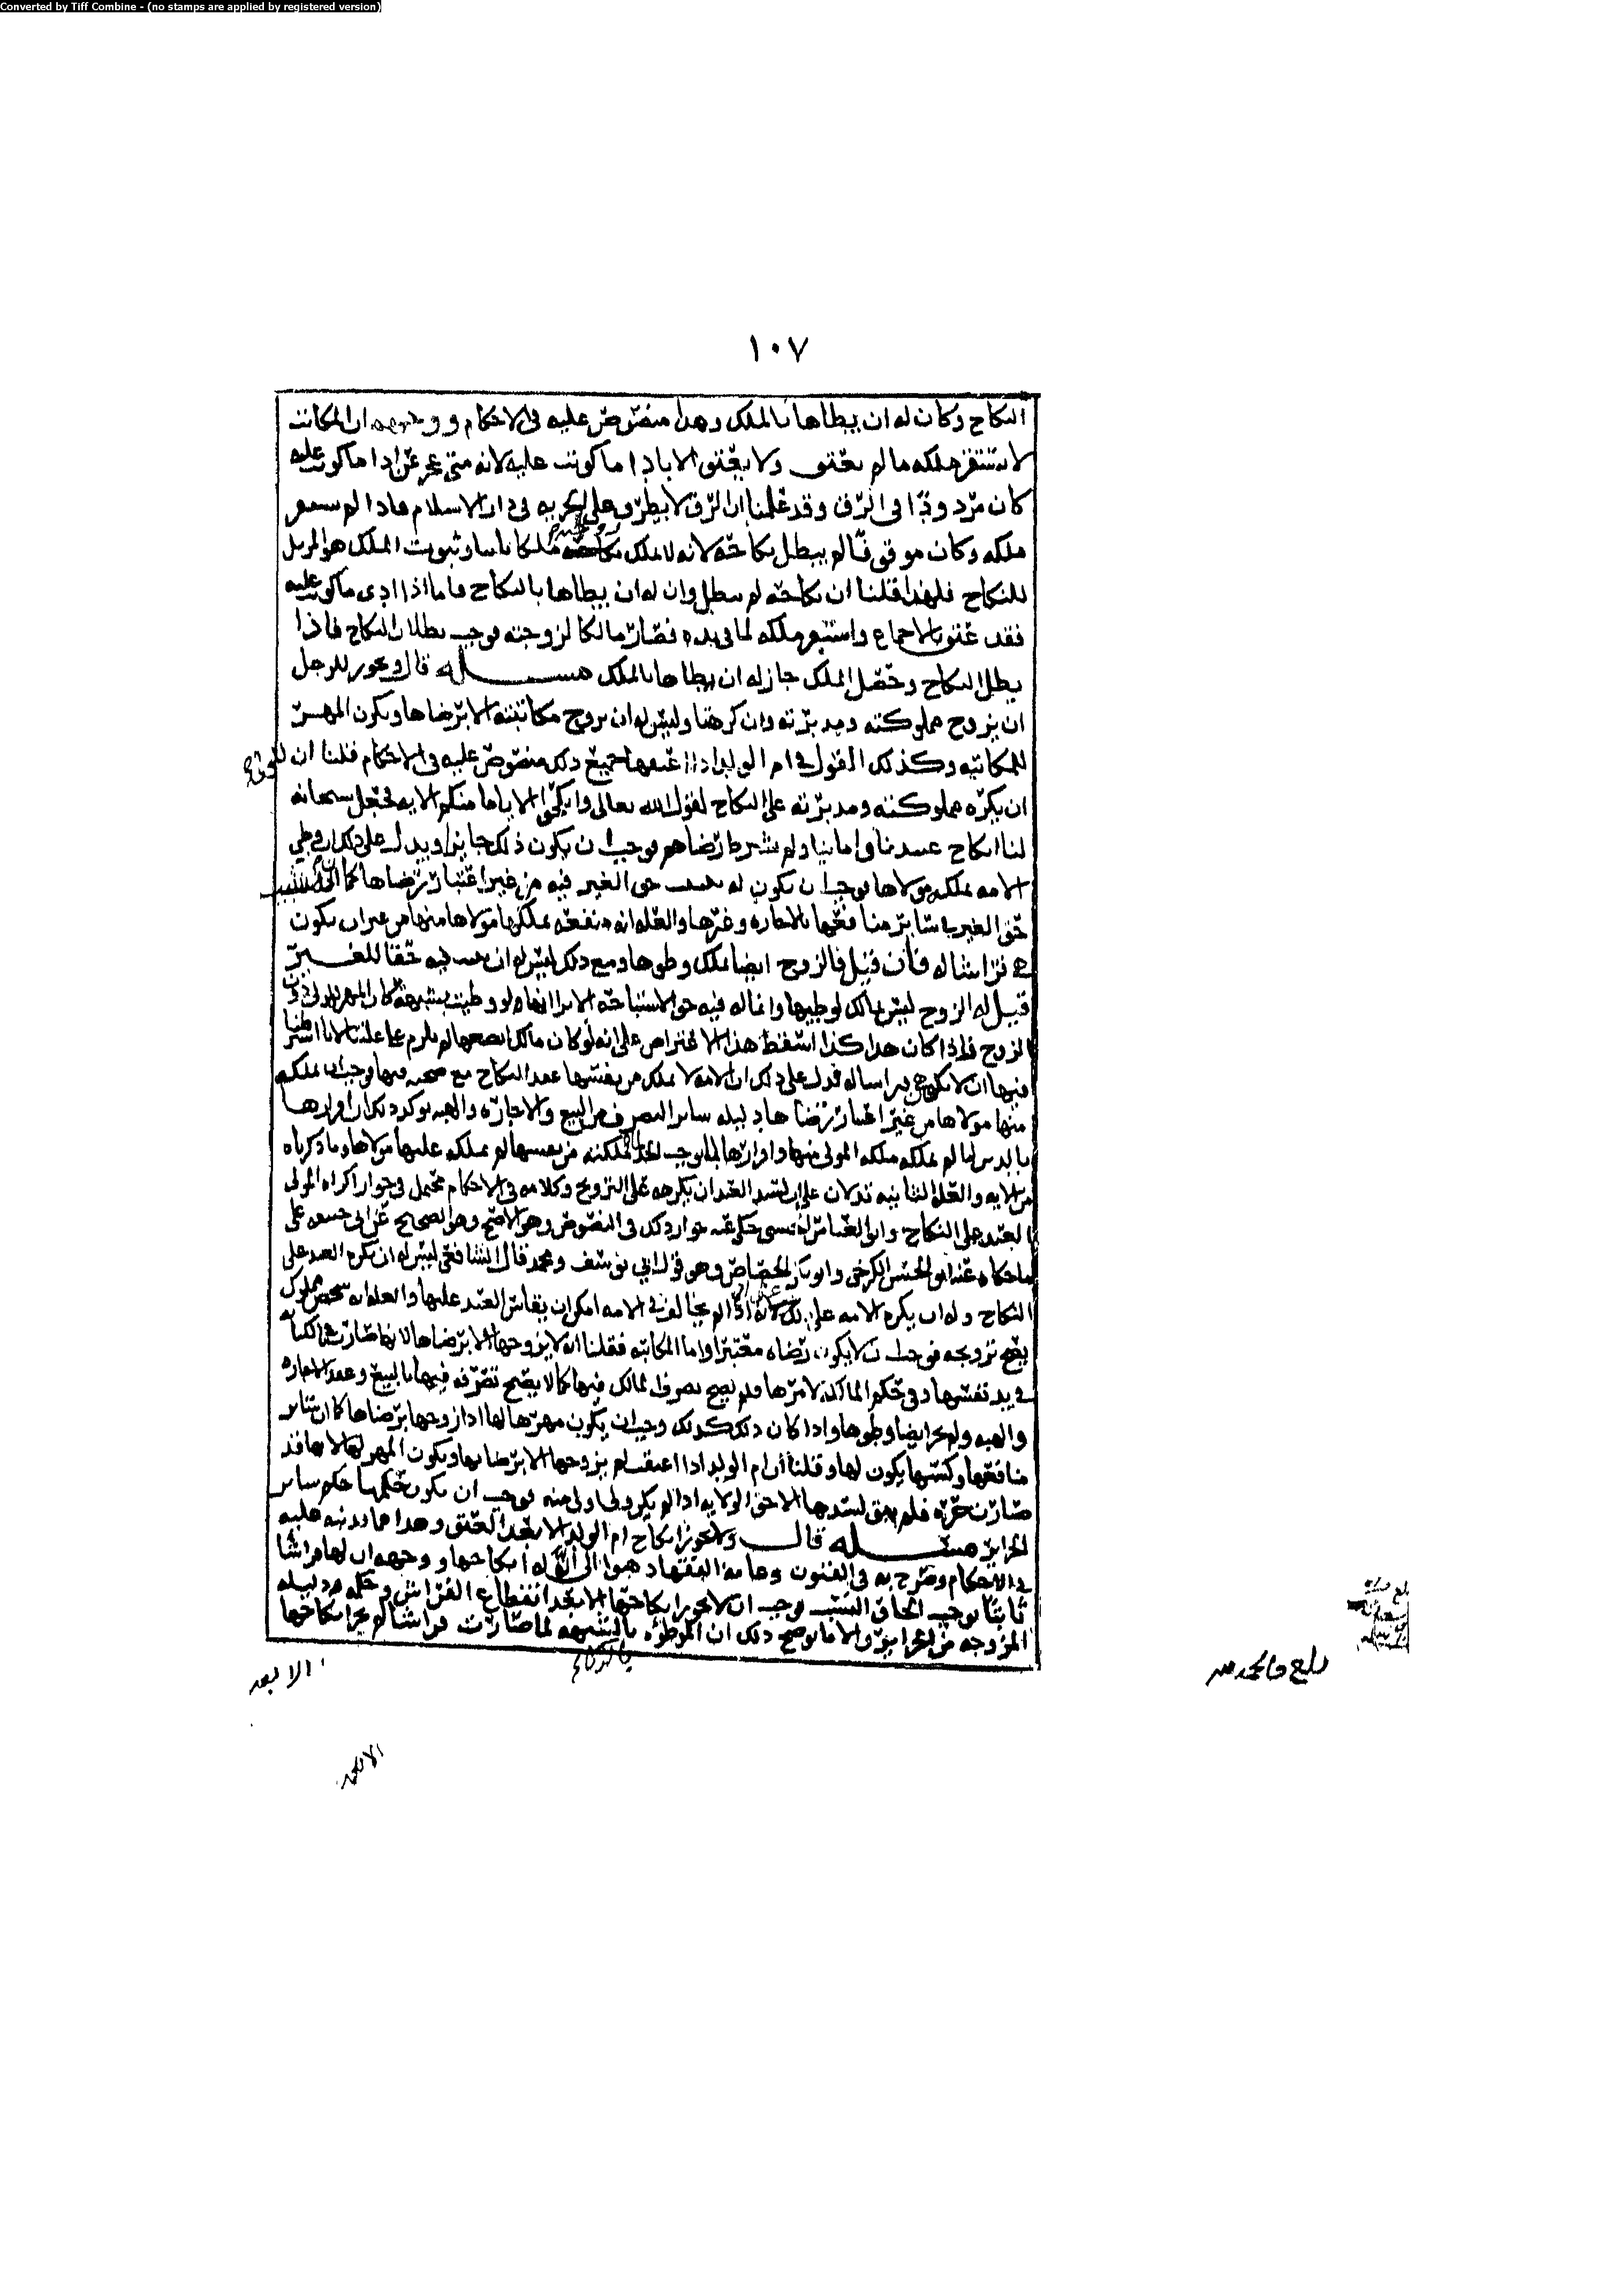 Converted by Tiff Combine - (no stamps are applied by registered version)
١٠٧
النكاح وكان له ان يطاها بالملك وهذا منصوص عليه في الاحكام ووجهه ان المكاتب
لا يستقر ملكه ما لم يعتق ولا يعتق الا باداء ما كوتب عليه لانه متى عجز عن اداء ما كوتب عليه
كان مردودا في الرق وقد علمنا ان الرق لا يطرو على الحرية في دار الاسلام فاذا لم يستقر
ملكه وكان موقوفا لم يبطل نكاحه لانه لا يملك ملكا تاما وثبوت الملك هو المزيل
للنكاح فلهذا قلنا ان نكاحه لم يبطل وان له ان يطاها بالنكاح فاما اذا ادى ما كوتب عليه
فقد عتق بالاجماع واستقر ملكه لما في يده فصار مالكا لزوجته فوجب بطلان النكاح فاذا
بطل النكاح وحصل الملك جاز له ان يطاها بالملك مسالة قال ويجوز للرجل
ان يزوج مملوكته ومدبرته وان كرهتا وليس له ان يزوج مكاتبته الا برضاها ويكون المهر
للمكاتبه وكذلك القول في ام الولد اذا اعتقها جميع ذلك منصوص عليه في الاحكام قلنا ان
ان يكره مملوكته ومدبرته على النكاح لقول الله تعالى وانكحوا الايامى منكم الايه فجعل سبحانه
لنا انكاح عبيدنا وامائنا ولم يشرط رضاهم فوجب ان يكون ذلك جايزا ويدل على ذلك ان وطي
الامه يملكه مولاها فوجب ان يكون له حق الغير فيه من غير اعتبار رضاها كما
حق الغير بسائر منافعها بالاجاره وغيرها والعله انه منفعه يملكها مولاها منها من غير ان يكون
فراشا له فان قيل فالزوج ايضا يملك وطوها ومع ذلك ليس له ان يثبت فيه حقا للغير
قيل له الزوج ليس بمالك لوطيها وانما له فيه حق الاستباحة الا ترا انها لو وطيت بشبهة كان المهر لها دون
الزوج فاذا كان هذا كذا اسقط هذا الاعتراض على انه لو كان مالك بضعها لم يلزم على علتنا لانا اشترطنا
فيها ان لا يكون فراشا له فدل على ذلك ان الامه لا تملك من نفسها عقد النكاح مع صحته فيها فوجب ان يملكه
منها مولاها من غير اعتبار رضاها دليله ساير التصرف من البيع والاجارة والهبه يوكد ذلك ان اقرارها
بالدين لما لم تملكه ملكه المولى منها واقرارها لما يوجب الحد لما ملكته من نفسها لم يملكه عليها مولاها وما ذكرناه
من الايه والعلة الثانيه تدلان على ان لسيد العبد ان يكرهه على التزويج وكلامه في الاحكام محتمل في جواز اكراه المولى
العبد على النكاح وابو العباس الحسني حكى عنه جواز ذلك في النصوص وهو الاصح وهو الصحيح عن ابي حنيفه على
ما حكاه عنه ابو الحسن الكرخي وابو بكر الجصاص وهو قول ابي يوسف ومحمد قال الشافعي ليس له ان يكره العبد على
النكاح وله ان يكره الامه على ذلك لانه اذا لم يخالف في الامه امكن ان يقاس العبد عليها والعله انه شخص مملوك
يصح تزويجه فوجب ان لا يكون رضاه معتبرا واما المكاتبه فقلنا انه لا يزوجها الا برضاها لانها صارت في الكتابه
في يد نفسها وفي حكم المالكه لامرها فلم يصح تصرف المالك فيها كما لا يصح تصرفه فيها بالبيع وعقد الاجاره
والهبه ولم يجز ايضا وطوها واذا كان ذلك كذلك وجب ان يكون مهرها لها اذا زوجها برضاها كما ان ساير
منافعها وكسبها يكون لها وقلنا ان ام الولد اذا اعتقت لم يزوجها الا برضاها ويكون المهر لها لانها قد
صارت حرة فلم يبق لسيدها الا حق الولايه اذا لم يكن ولي اولى منه فوجب ان يكون حكمها حكم ساير
الحراير مسالة قال ولا يجوز انكاح ام الولد الا بعد العتق وهذا مما دل به عليه
في الاحكام وصرح به في الفنون وعامة الفقهاء ذهبوا الى ان له انكاحها ووجهه ان لها فراشا
ثابتا يوجب الحاق النسب فوجب ان لا يجوز انكاحها الا بعد انقطاع الفراش وحكمه دليله
المزوجه من الحراير والاما يوضح ذلك ان الموطؤه بالشبهه لما صارت فراشا لم يجز انكاحها
الا بعد
الا بعد